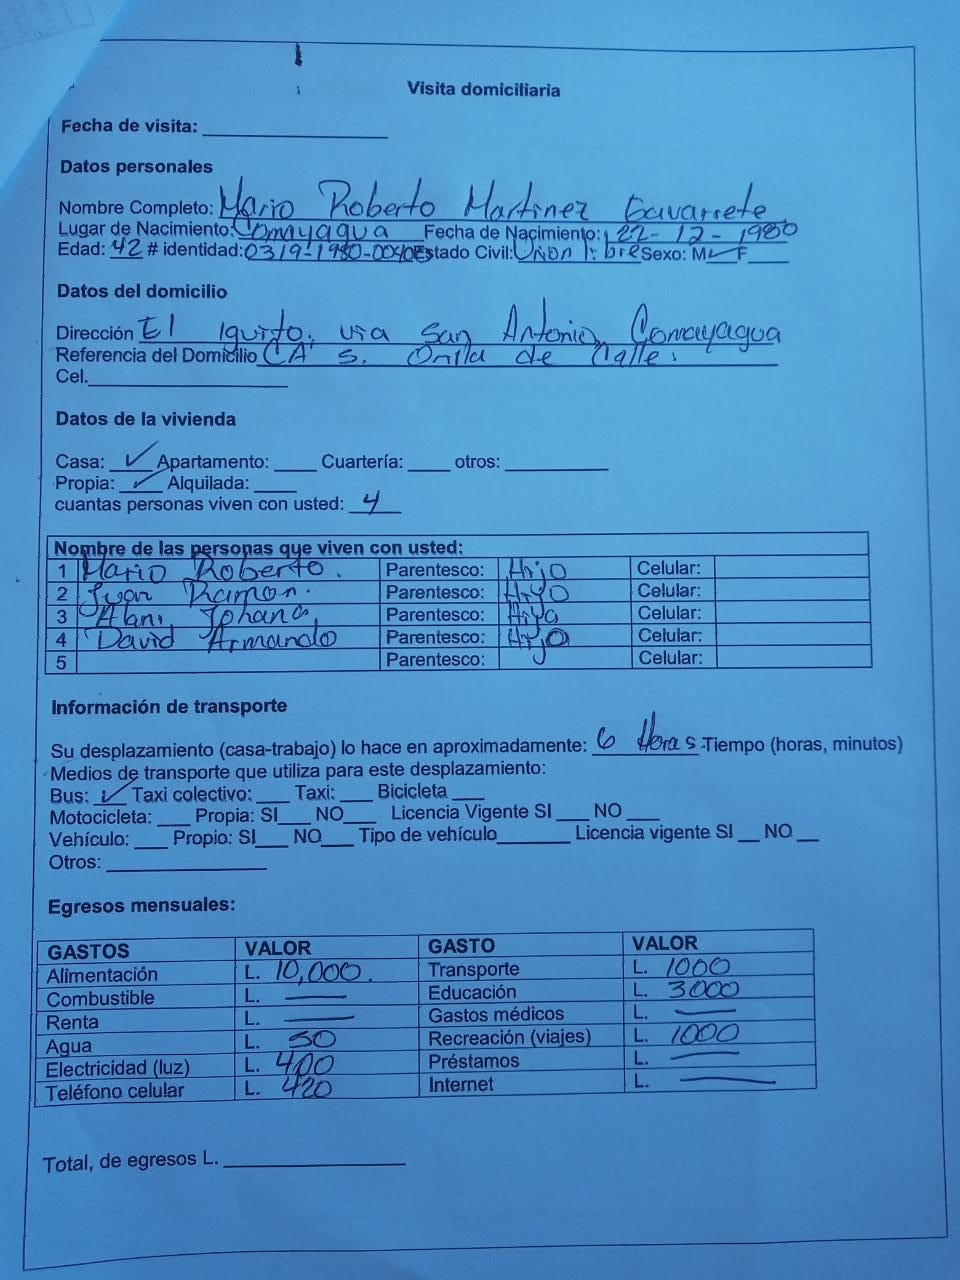 Visita domiciliaria
Fecha de visita: ____________
Datos personales
Nombre Completo: Mario Roberto Martinez Gavarrete
Lugar de Nacimiento: Comayagua Fecha de Nacimiento: 22-12-1980
Edad: 42 # identidad: 0319-1980- Estado Civil: Union libre Sexo: M ✓ F ____
Datos del domicilio
Dirección El via San Antonio, Comayagua
Referencia del Domicilio CA 5. Orilla de Calle.
Cel. ____________
Datos de la vivienda
Casa: ✓ Apartamento: ____ Cuartería: ____ otros: ________
Propia: ✓ Alquilada: ____
cuantas personas viven con usted: 4
Nombre de las personas que viven con usted:
1 Mario Roberto. Parentesco: Hijo Celular:
2 Juan Ramon. Parentesco: Hiyo Celular:
3 Johana, Parentesco: Hiya Celular:
4 David Armando Parentesco: Hiyo Celular:
5 Parentesco: Celular:
Información de transporte
Su desplazamiento (casa-trabajo) lo hace en aproximadamente: 6 Horas Tiempo (horas, minutos)
Medios de transporte que utiliza para este desplazamiento:
Bus: ✓ Taxi colectivo: ___ Taxi: ___ Bicicleta ___
Motocicleta: ___ Propia: SI___ NO___ Licencia Vigente SI ___ NO ___
Vehículo: ___ Propio: SI___ NO___ Tipo de vehículo_______ Licencia vigente SI __ NO __
Otros: ____________
Egresos mensuales:
GASTOS VALOR GASTO VALOR
Alimentación L. 10,000. Transporte L. 1000
Combustible L. — Educación L. 3000
Renta L. — Gastos médicos L. —
Agua L. 50 Recreación (viajes) L. 1000
Electricidad (luz) L. 400 Préstamos L. —
Teléfono celular L. 420 Internet L. —
Total, de egresos L. ____________